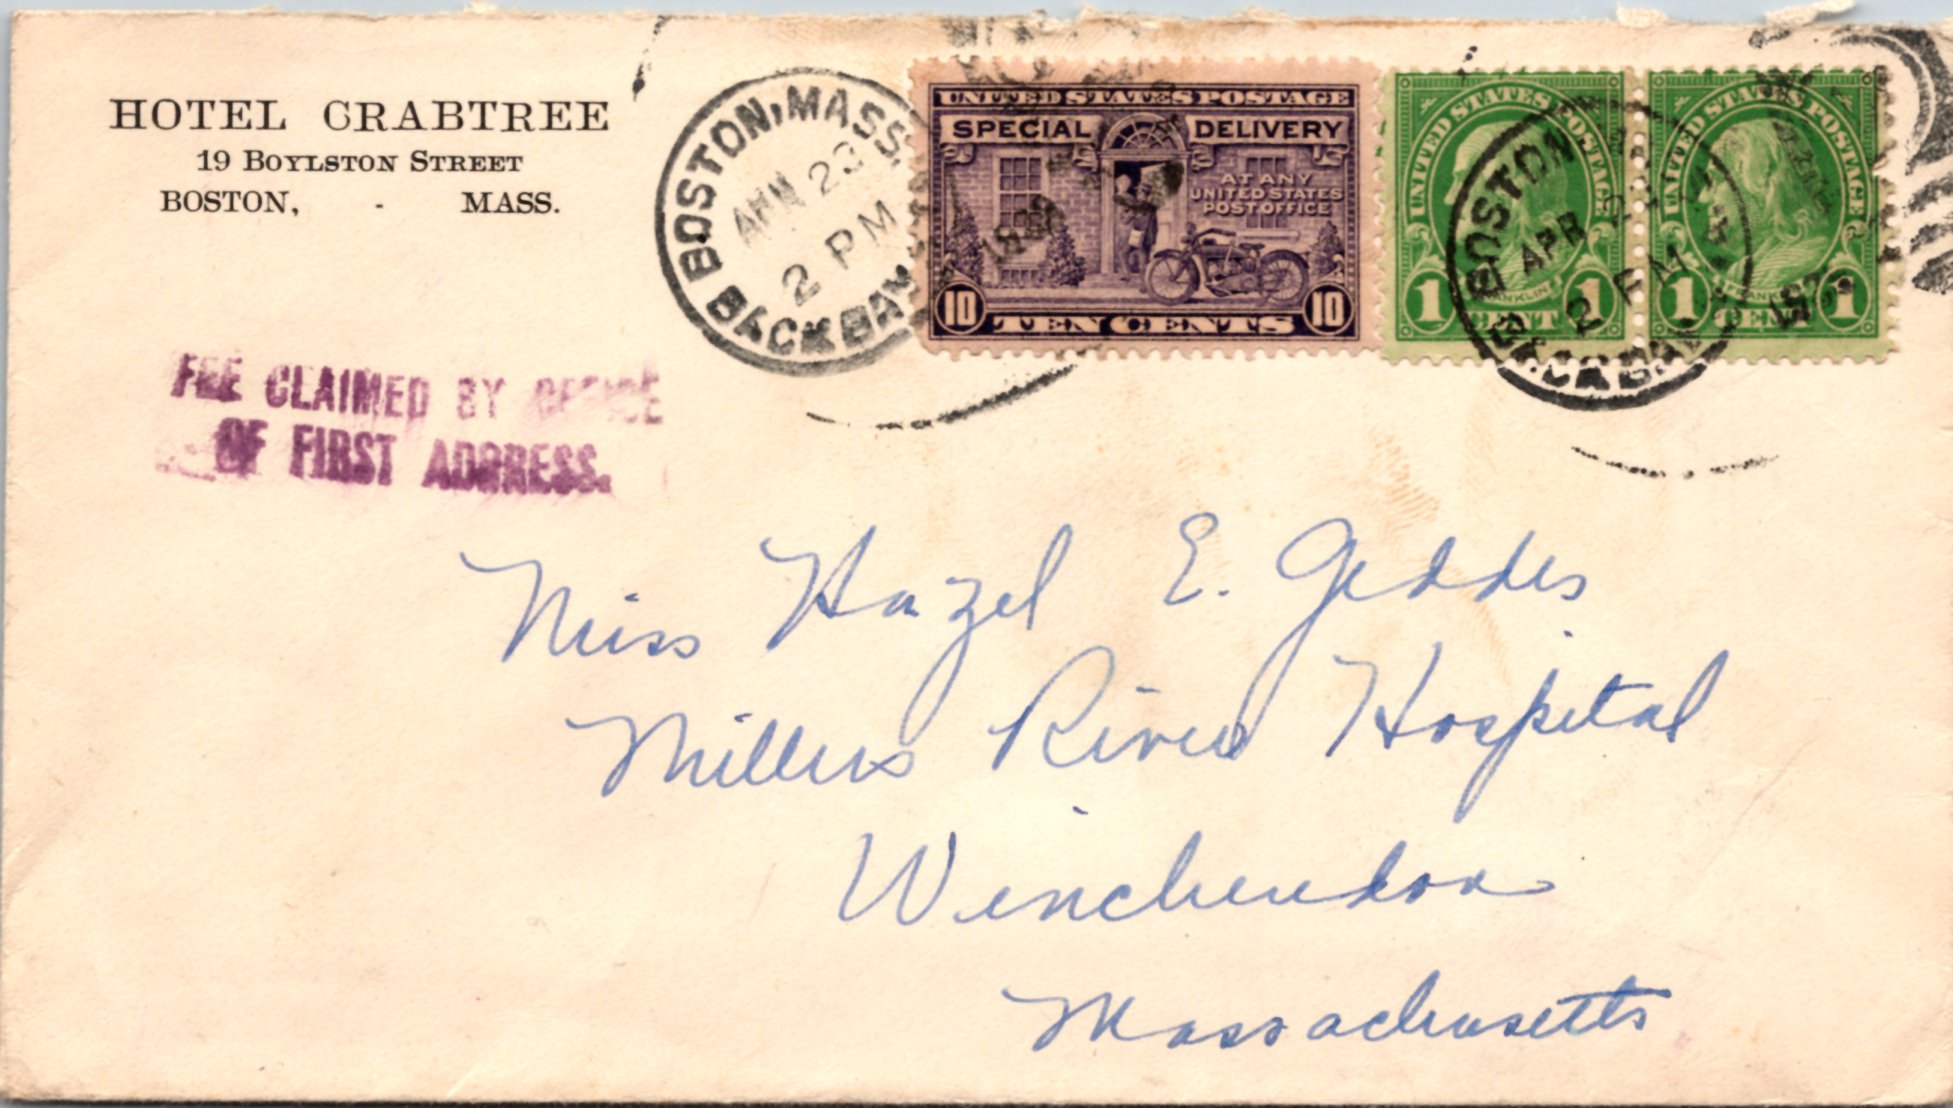 HOTEL CRABTREE
19 BOYLSTON STREET
BOSTON, - MASS.
BOSTON, MASS.
APR 23
2 PM
BACK BAY
UNITED STATES POSTAGE
SPECIAL DELIVERY
AT ANY
UNITED STATES
POST OFFICE
10 TEN CENTS 10
UNITED STATES POSTAGE
FRANKLIN
1 CENT 1
UNITED STATES POSTAGE
FRANKLIN
1 CENT 1
BOSTON
APR
2 PM
BACK BAY
FEE CLAIMED BY OFFICE
OF FIRST ADDRESS.
Miss Hazel E. Geddes
Millers River Hospital
Winchendon
Massachusetts